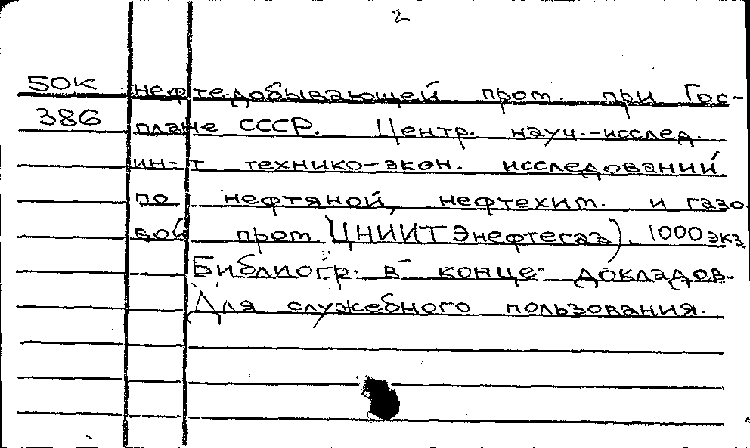 2
50К нефтедобывающей пром. при Гос-
386 плане СССР. Центр. науч.-исслед.
ин-т технико-экон. исследований
по нефтяной, нефтехим. и газо
вой пром. (ЦНИИТЭнефтегаз). 1000 экз
Библиогр. в конце докладов.
Для служебного пользования.